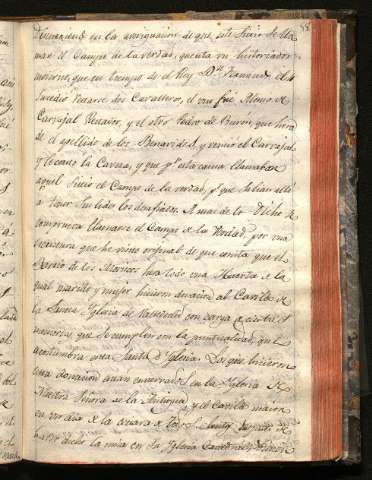 en la averiguacion de que este sitio de lla
mar el Campo de la verdad, cuenta un historiador
moderno, que en tiempo de el Rey Dn. Fernando el 4
Sucedio dos Cavalleros, el uno fue Alonso de
Carvajal Senador, y el otro Pedro de que hera
de el apellido de los Benavides, y vencio el Carvajal
y le cauo la Cavesa, y que pr. esta causa llamaban
aquel Sitio el Campo de la verdad, pr. que salian alli
a tener sus lides los desafiados. A mas de lo Dicho se
comprueva llamarse el Campo de la Verdad por una
escritura que he visto original de que consta que el
de los Marcos hera todo una Huerta de la
qual marido y mujer hicieron donacion al Cavildo de
la Santa Yglesia de Valladolid con carga de ciertas
memorias que se cumplen con la puntualidad que
acostumbra esta Santa Yglesia. Los que hicieron
esta donacion estan enterrados en la Yglesia de
Nuestra Señora de la Antigua, y el Cavildo maior
en un dia de la octava de todos Santos despues de
haver dicho la misa en su Yglesia Catedral